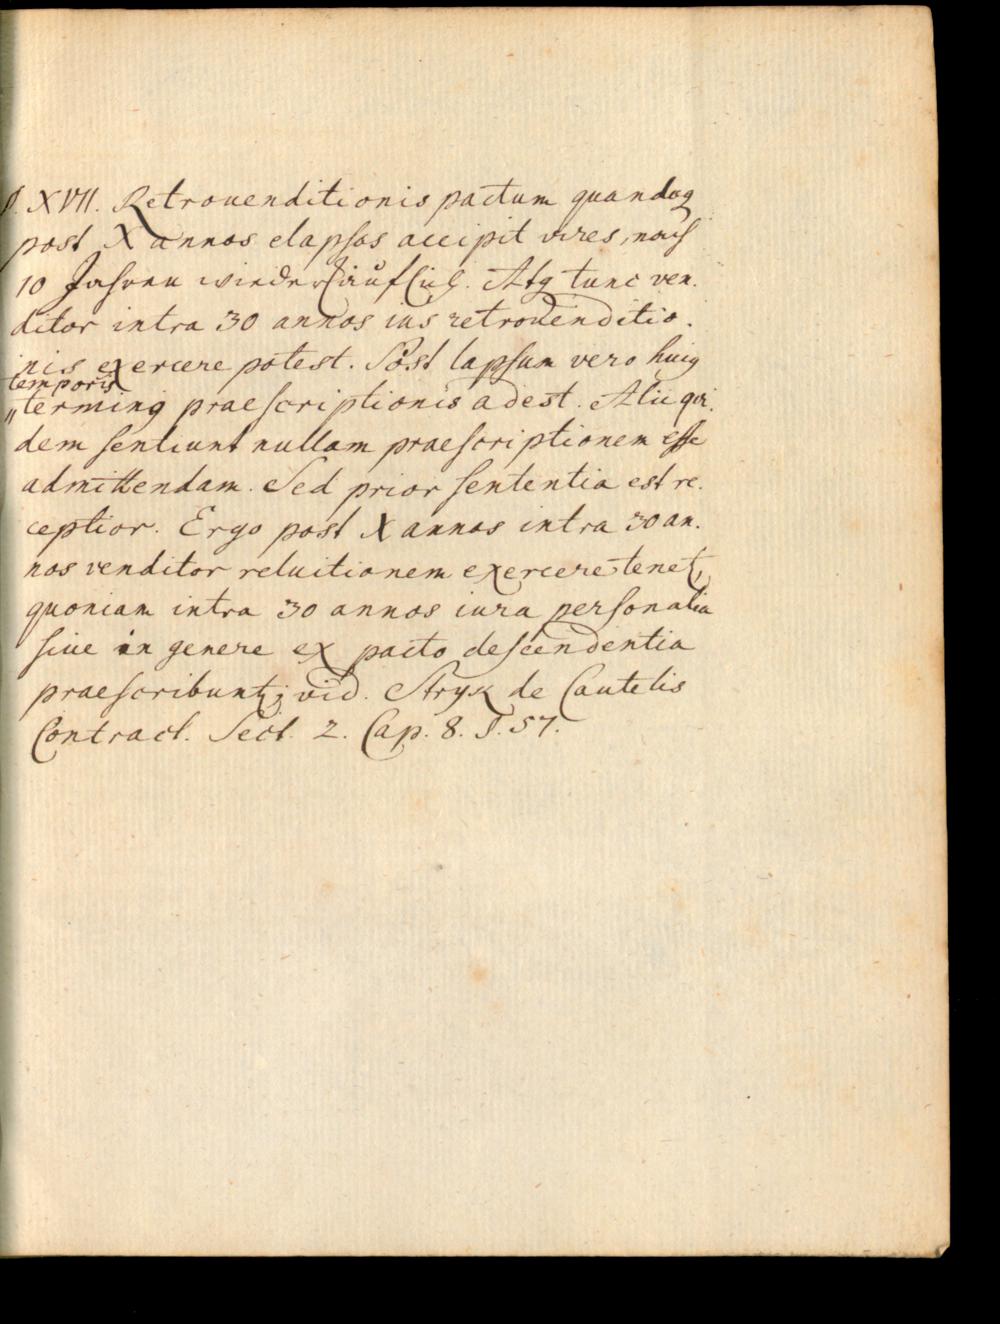 §. XVII. Retrouenditionis pactum quandoq
post X annos elapsos accipit vires, nach
10 Jahren wiederkäufflich. Atq tunc ven.
ditor intra 30 annos ius retrovenditio.
nis exercere potest. Post lapsum vero huiq
temporis
"terminq praescriptionis adest. Alii qui.
dem sentiunt nullam praescriptionem esse
admittendam. Sed prior sententia est re.
ceptior. Ergo post X annos intra 30 an.
nos venditor reluitionem exercere tenet,
quoniam intra 30 annos iura personalia
siue in genere ex pacto descendentia
praescribunt; vid. Stryk de Cautelis
Contract. Sect. 2. Cap. 8. §. 57.